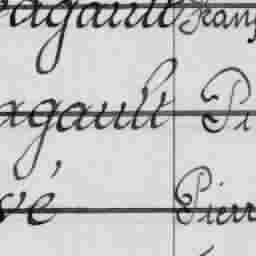 agault Franç
agault Pi
vé Pierr